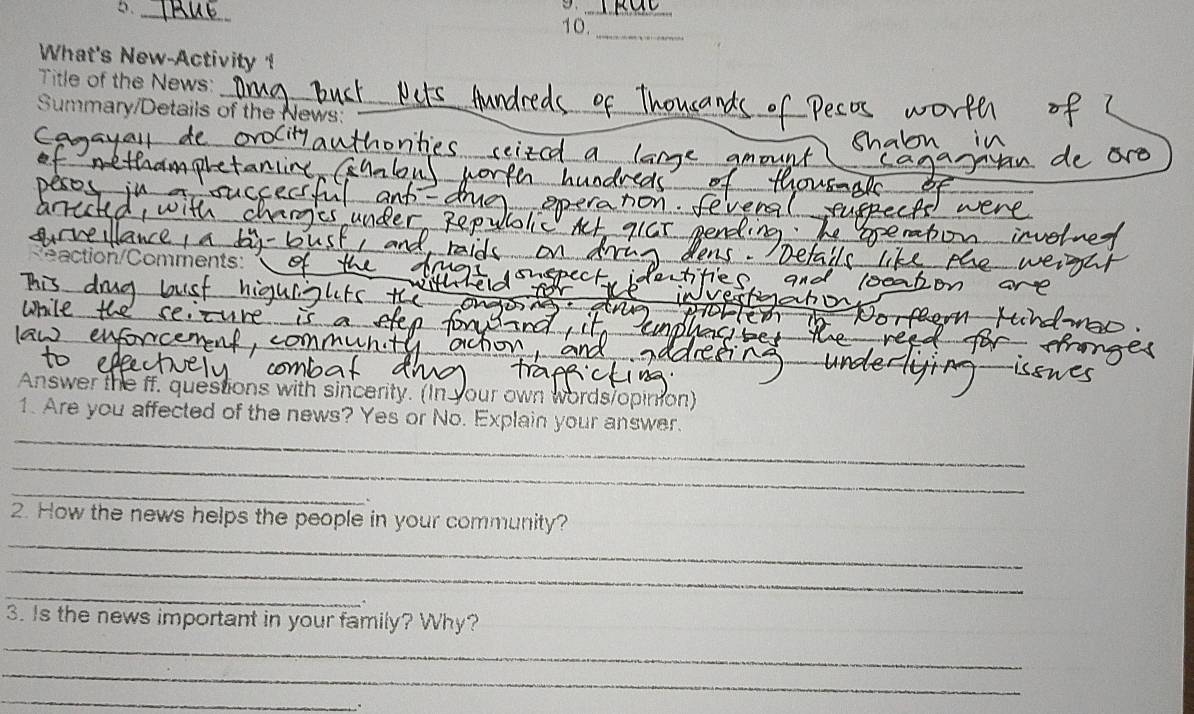 5. TRUE
9. TRUE
10.
What's New-Activity 1
Title of the News: Drug bust Nets Hundreds of Thousands of Pesos worth of
Shabon in
Cagagayan de oro
Summary/Details of the News:
Cagayan de oro city authorities seized a large amount
of methamphetamine (shabu) worth hundreds of thousands of
pesos in a successful anti-drug operation. Several suspects were
arrected, with charges under Republic Act 9165 pending. he operation involved
surveillance, a buy-bust, and raids on drug dens. Details like the weight
of the drugs, suspect identities, and location are
withheld for the investigation
Reaction/Comments:
This drug bust highlights the ongoing drug problem in Northern Mindanao.
While the seizure is a step forward, it emphasizes the need for stronges
law enforcement, community action, and addressing underlying issues
to effectively combat drug trafficking.
Answer the ff. questions with sincerity. (In your own words/opinion)
1. Are you affected of the news? Yes or No. Explain your answer.
2. How the news helps the people in your community?
3. Is the news important in your family? Why?